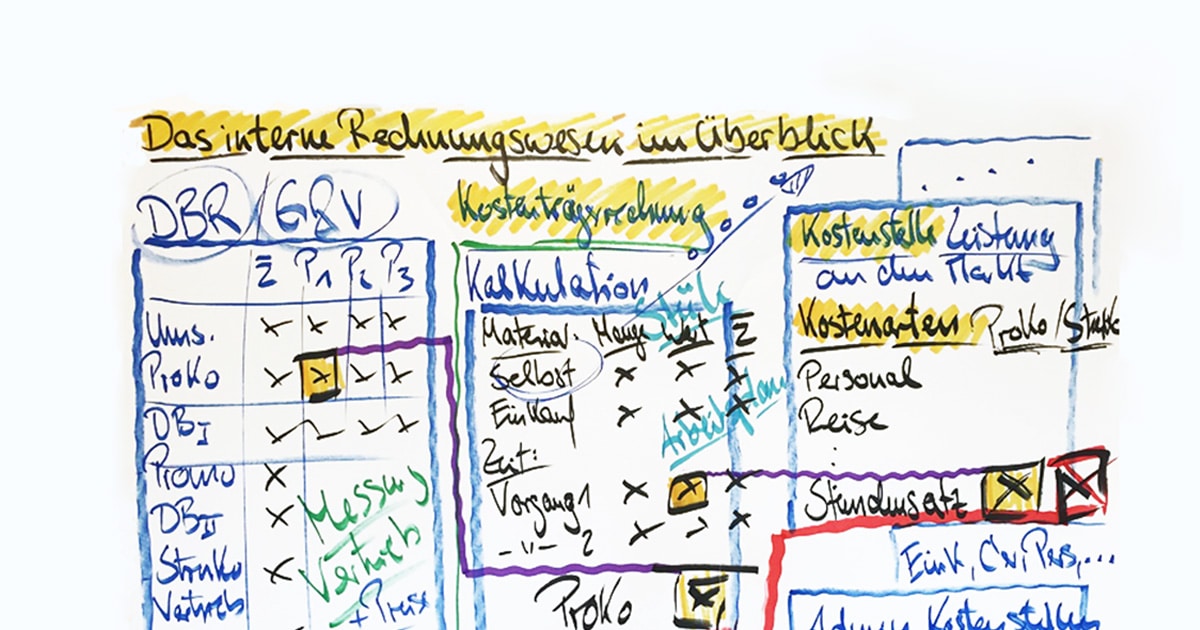 Das interne Rechnungswesen im Überblick
DBR / G&V
Σ P1 P2 P3
Ums. x x x x
ProKo x x x x
DB I
Promo x
DB II x
Struko x
Vertrieb
Messung
Vertrieb
+ Preise
Kostenträgerrechnung
Kalkulation
Stüli
Material: Menge Wert Σ
Selbst x x x
Einkauf x x x
Arbeitsplan
Zeit:
Vorgang 1 x x x
- " - 2 x x
ProKo x
Kostenstelle Leistung
an den Markt
Kostenarten ProKo / Struko
Personal
Reise
:
Stundensatz x x
Eink, Co, Pers, ...
Kostenstellen